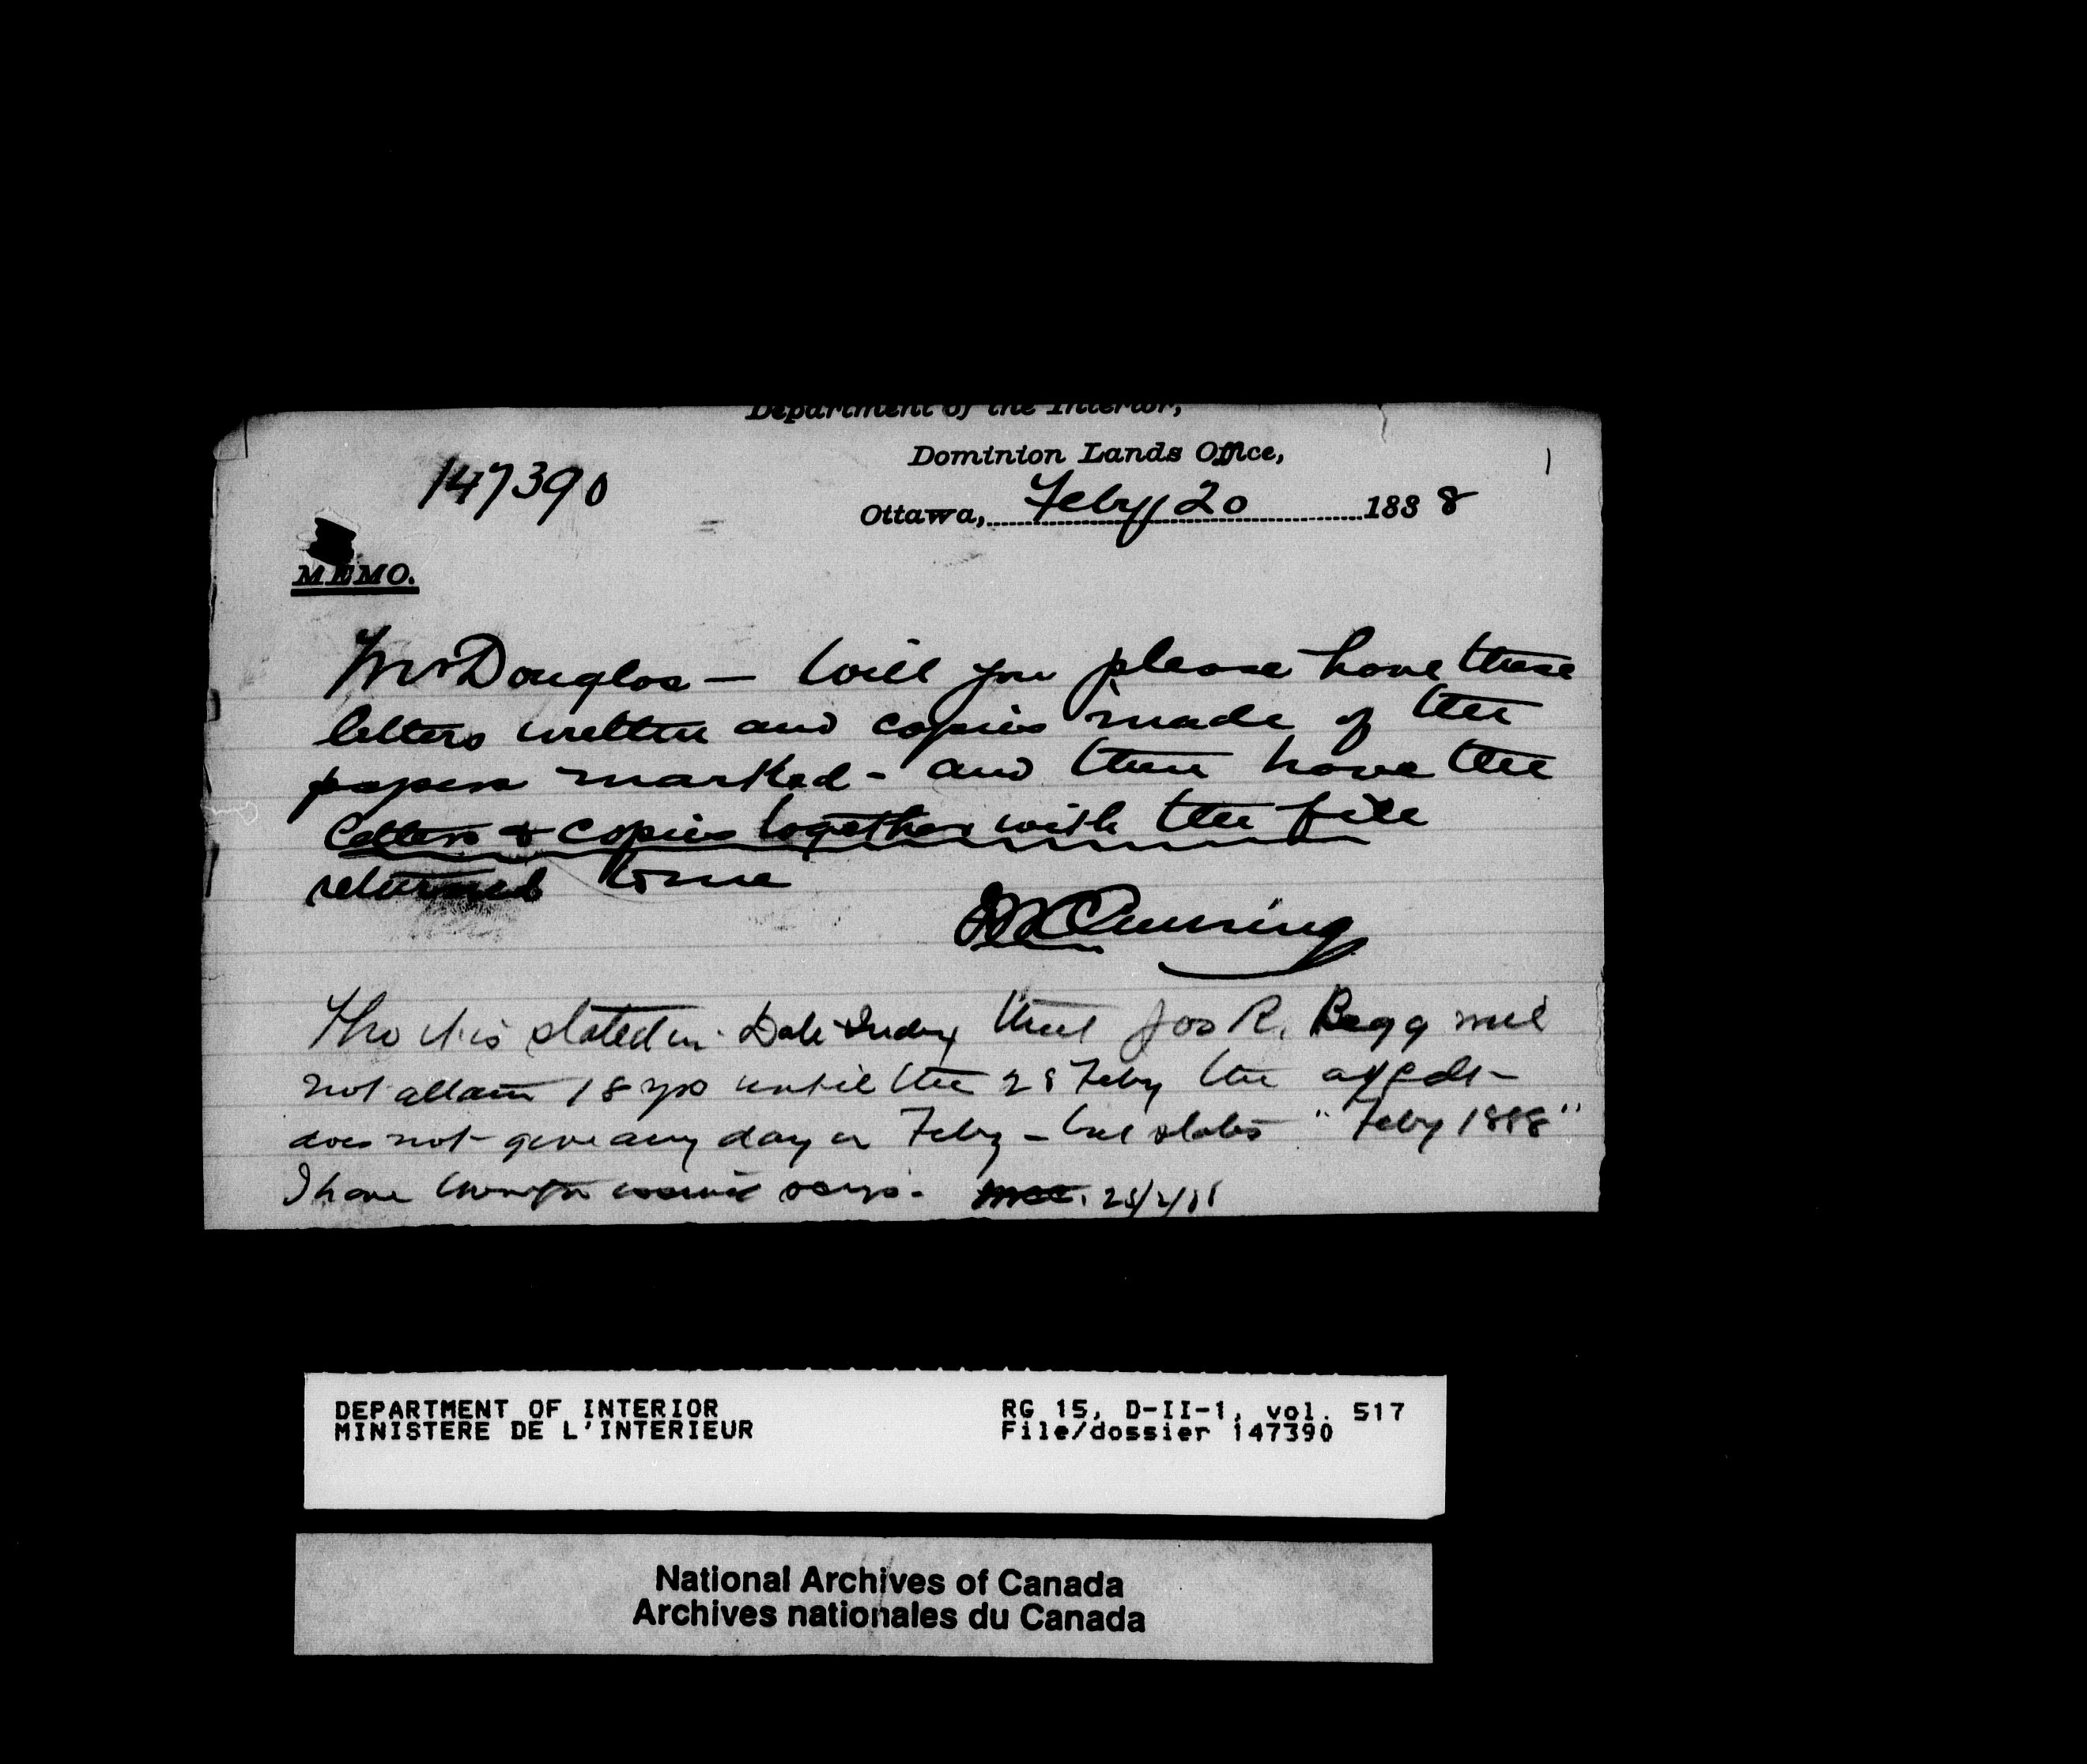 Department of the Interior,
Dominion Lands Office,
147390
Ottawa, Feby 20 1888
MEMO.
Mr Douglas — Will you please have these
letters written and copies made of the
papers marked - and then have the
letters & copies together with the file
returned to me
Tho it is stated in that Jos R. Begg will
not attain 18 yrs until the 28 Feby the
does not give any day in Feby - but states " Feby 1888 "
I have
DEPARTMENT OF INTERIOR
MINISTERE DE L'INTERIEUR
RG 15, D-II-1, vol. 517
File/dossier 147390
National Archives of Canada
Archives nationales du Canada